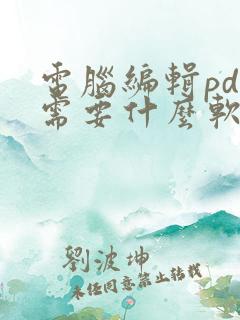 電腦編輯pd
需要什麼軟
劉波坤
未經同意禁止轉載